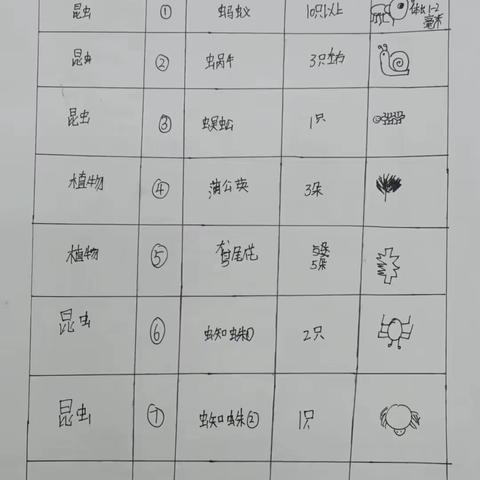 昆虫 ① 蚂蚁 10只以上 体长1-2毫米
昆虫 ② 蜗牛 3只
昆虫 ③ 蜈蚣 1只
植物 ④ 蒲公英 3朵
植物 ⑤ 鸢尾花 5朵
昆虫 ⑥ 蜘蛛① 2只
昆虫 ⑦ 蜘蛛② 1只